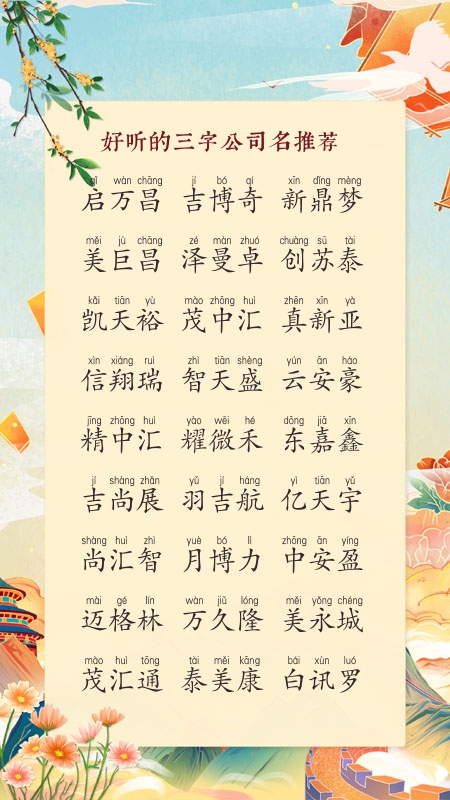 好听的三字公司名推荐
qǐ wàn chāng jí bó qí xīn dǐng mèng
启万昌 吉博奇 新鼎梦
měi jù chāng zé màn zhuó chuàng sū tài
美巨昌 泽曼卓 创苏泰
kǎi tiān yù mào zhōng huì zhēn xīn yà
凯天裕 茂中汇 真新亚
xìn xiáng ruì zhì tiān shèng yún ān háo
信翔瑞 智天盛 云安豪
jīng zhōng huì yào wēi hé dōng jiā xīn
精中汇 耀微禾 东嘉鑫
jí shàng zhǎn yǔ jí háng yì tiān yǔ
吉尚展 羽吉航 亿天宇
shàng huì zhì yuè bó lì zhōng ān yíng
尚汇智 月博力 中安盈
mài gé lín wàn jiǔ lóng měi yǒng chéng
迈格林 万久隆 美永城
mào huì tōng tài měi kāng bái xùn luó
茂汇通 泰美康 白讯罗